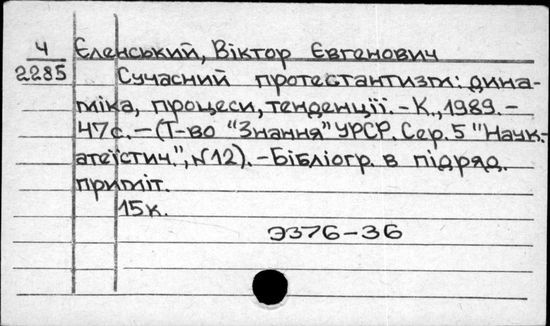 Ч
2285
Єленський, Віктор Євгенович
Сучасний протестантизм: дина-
міка, процеси, тенденції. – К., 1989. –
47с. – (Т-во "Знання" УРСР. Сер. 5 "Наук.-
атеїстич.", N12). – Бібліогр. в підряд.
приміт.
15к.
Э376–36